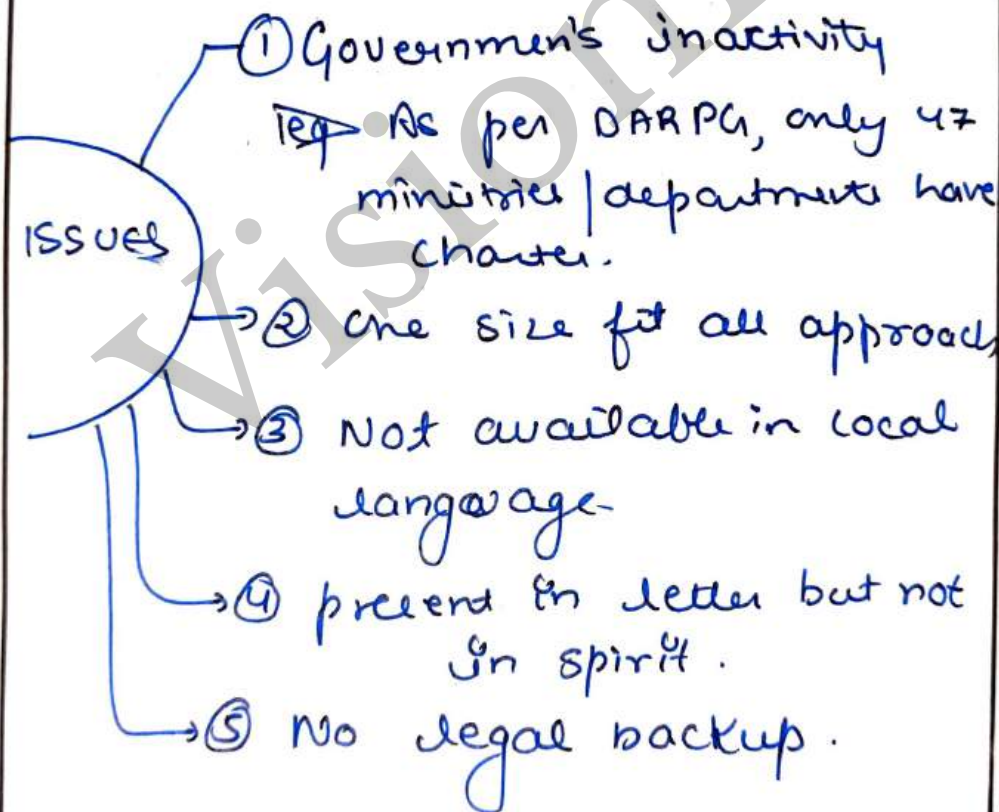 ① Governmen's inactivity
eg As per DARPG, only 47
ministries | departments have
charter.
ISSUES
② One size fit all approach
③ Not available in local
language.
④ present in letter but not
in spirit.
⑤ No legal backup.
Vision